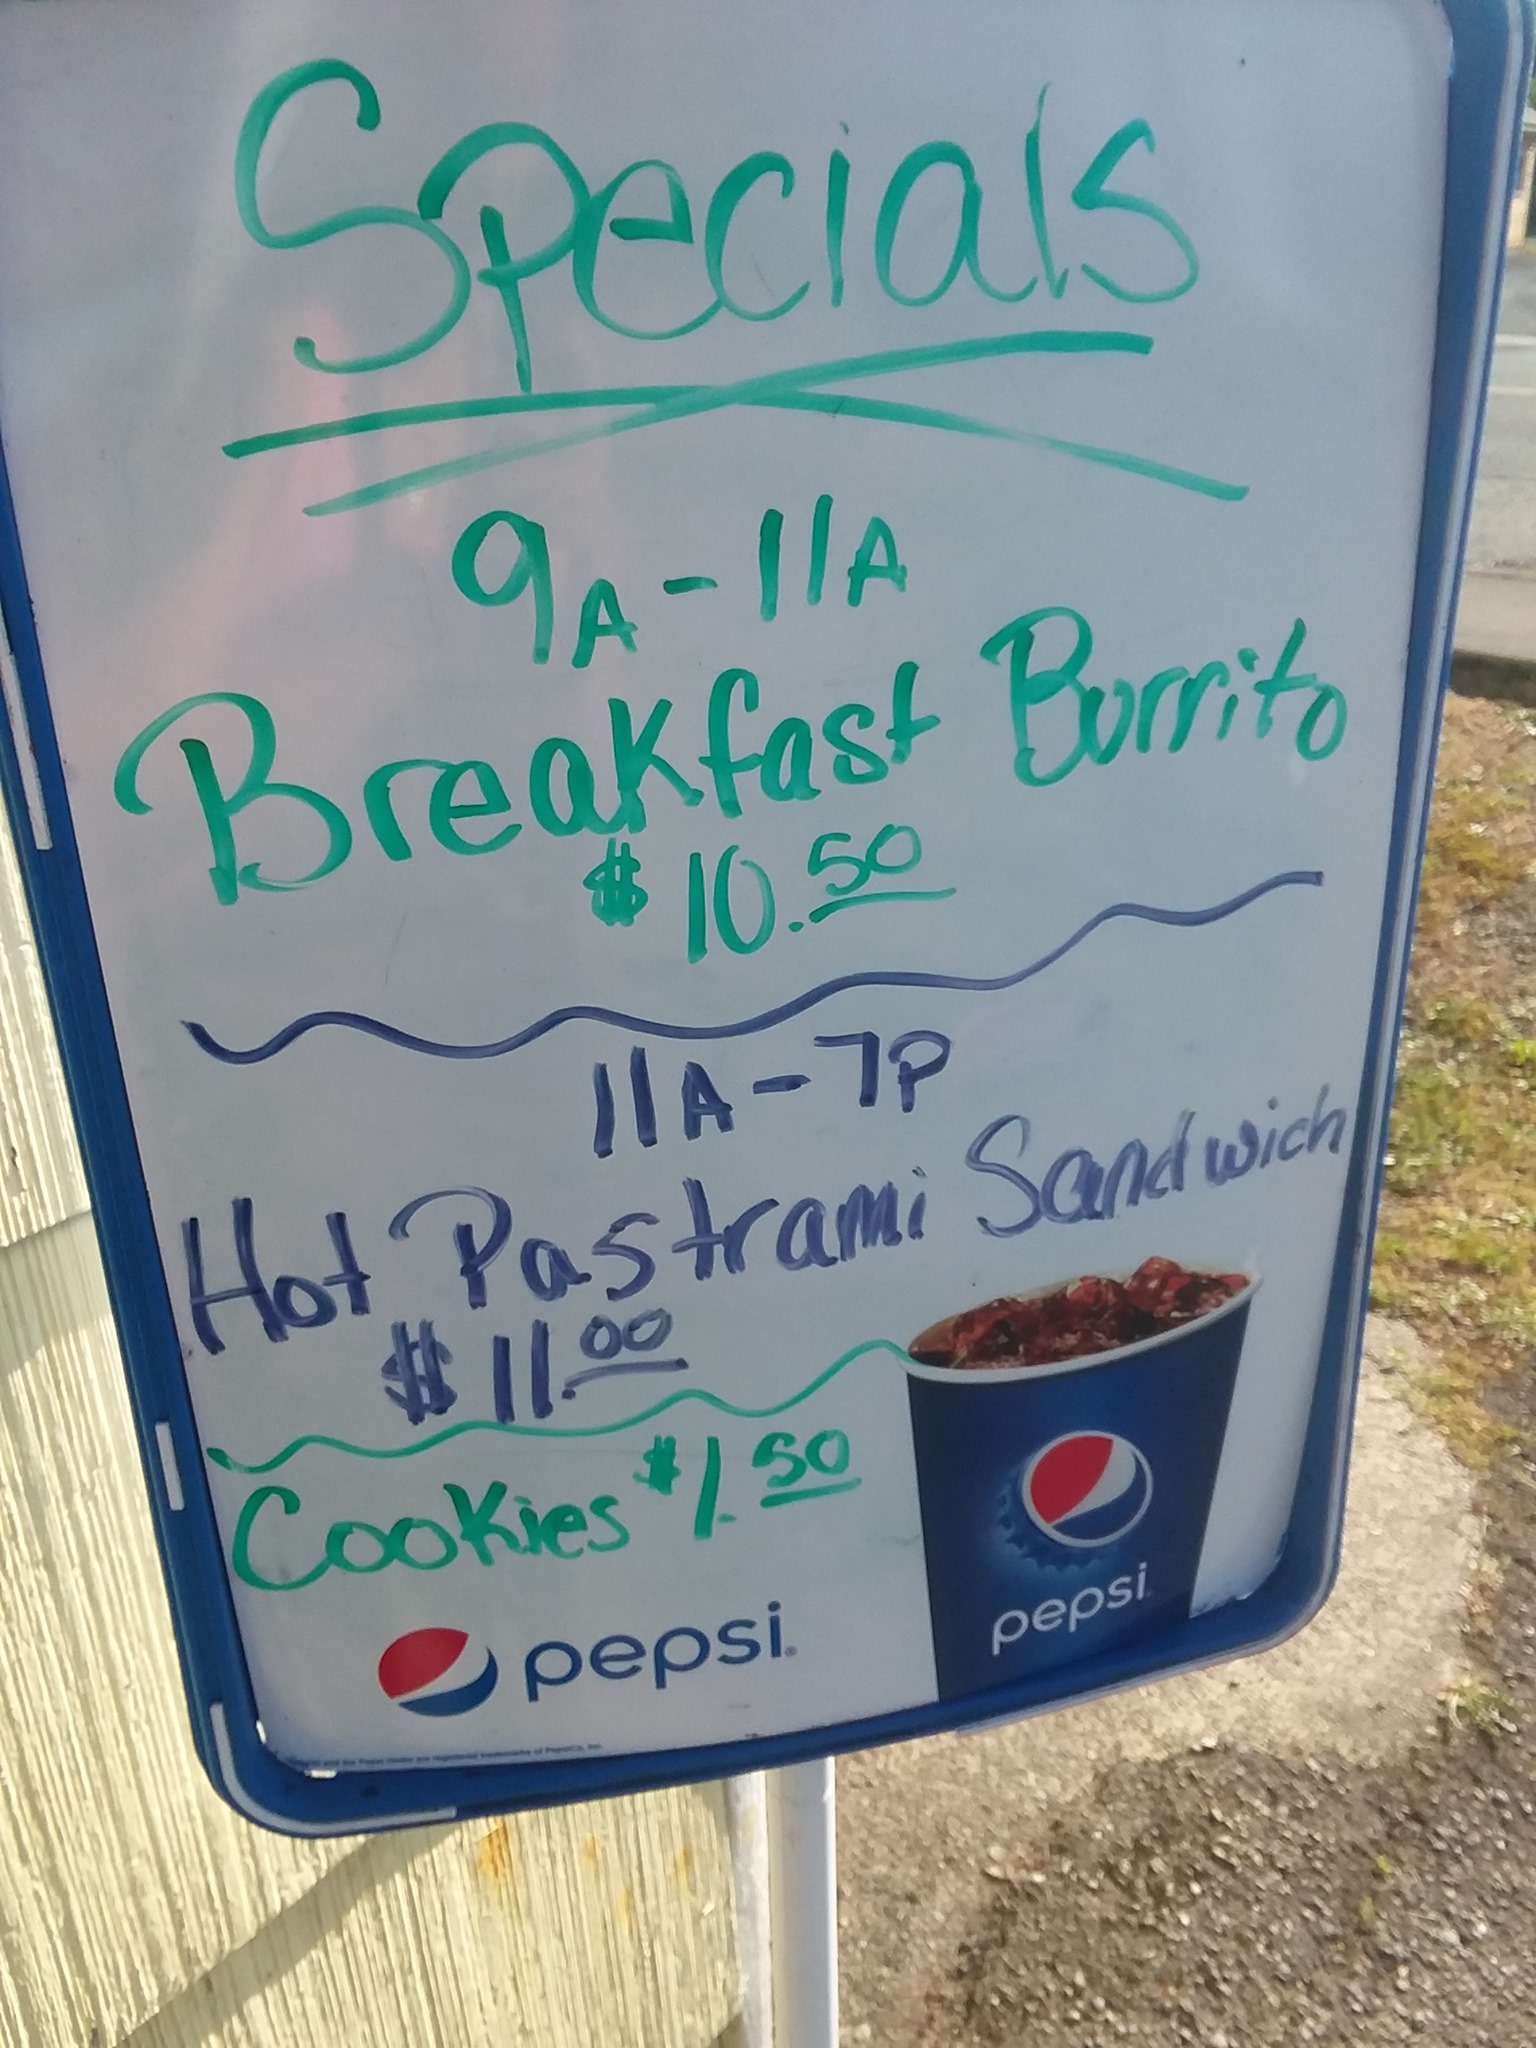 Specials
9A - 11A
Breakfast Burrito
$10.50
11A - 7P
Hot Pastrami Sandwich
$11.00
Cookies $1.50
pepsi
pepsi